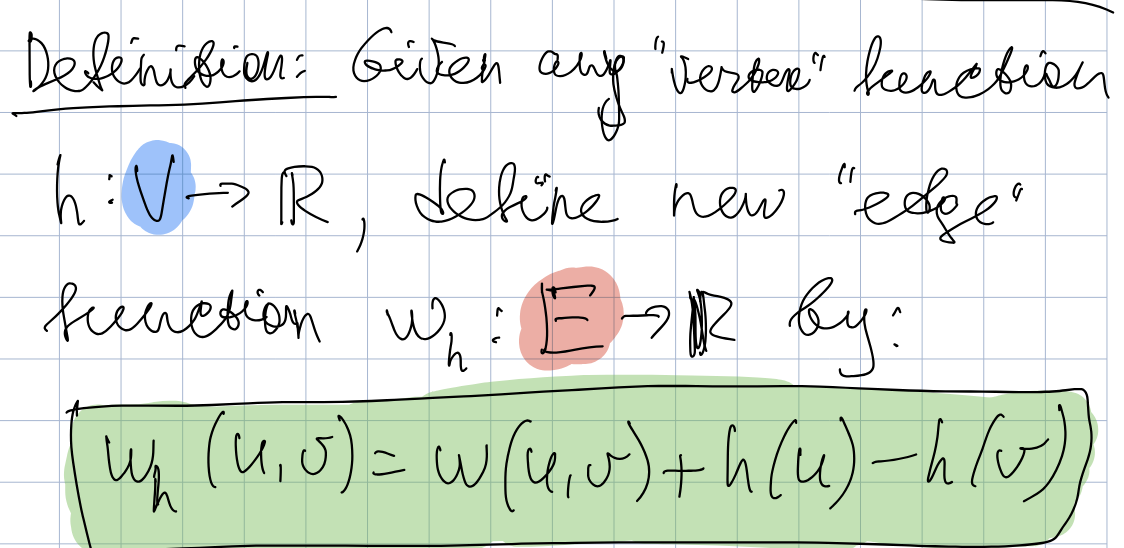 Definition: Given any "vertex" function
h: V → ℝ, define new "edge"
function w_h: E → ℝ by:
w_h (u,v) = w(u,v) + h(u) - h(v)